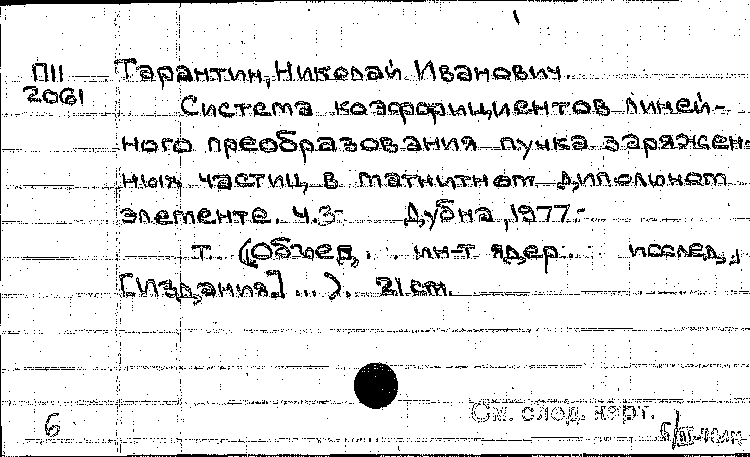 П11 Тарантин, Николай Иванович.
2061
Система коэффициентов линей-
ного преобразования пучка заряжен-
ных частиц в магнитном дипольном
элементе. Ч.3- Дубна, 1977.-
т. (Объед. ин-т ядер. исслед.,
[Издания] ...). 21 cm.
См. след. карт.
6